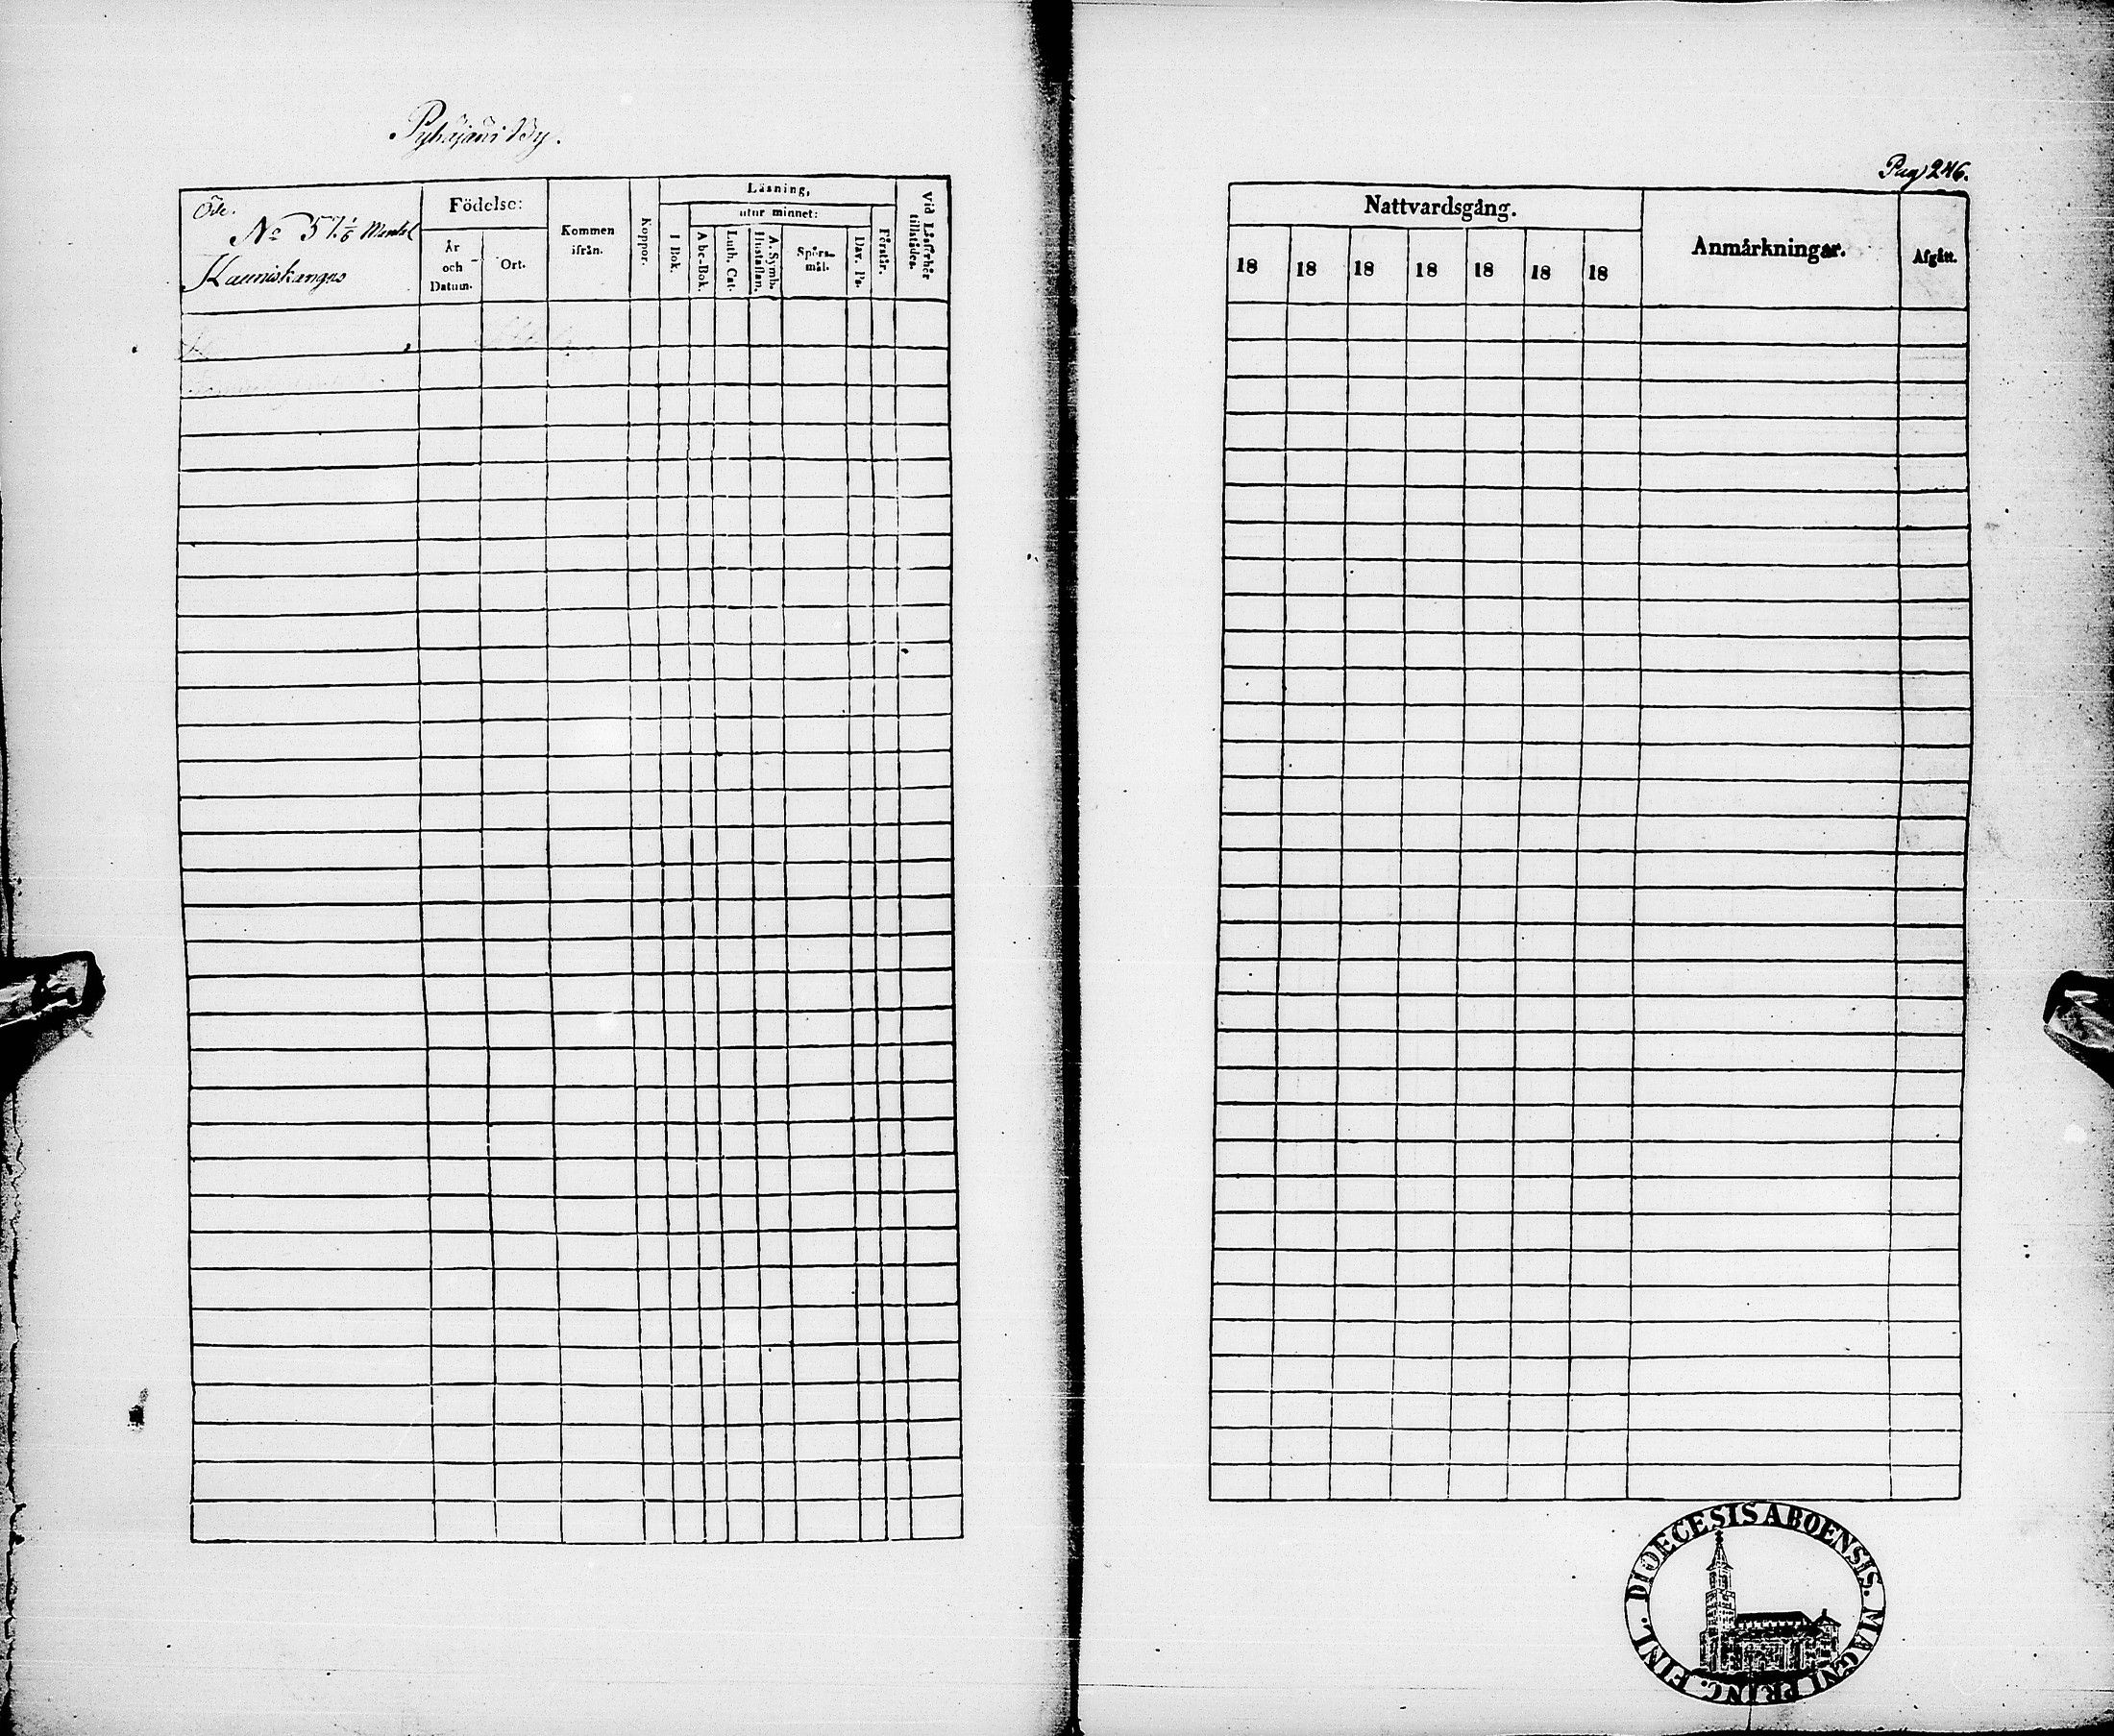 Pyhäjärvi By.
Öde.
No 57. 1/6 Mantal
Kauniskangas
Födelse:
År och Datum.
Ort.
Kommen ifrån.
Koppor.
Läsning,
utur minnet:
I Bok.
Abc-Bok.
Luth. Cat.
A. Symb. Hustaflan.
Spörsmål.
Dav. Ps.
Förstår.
Vid Läsförhör tillstådes.
Pag 246.
Nattvardsgång.
18 18 18 18 18 18 18
Anmårkningar.
Afgått.
DIOECESIS ABOENSIS. MAGNI PRINC. FINL.